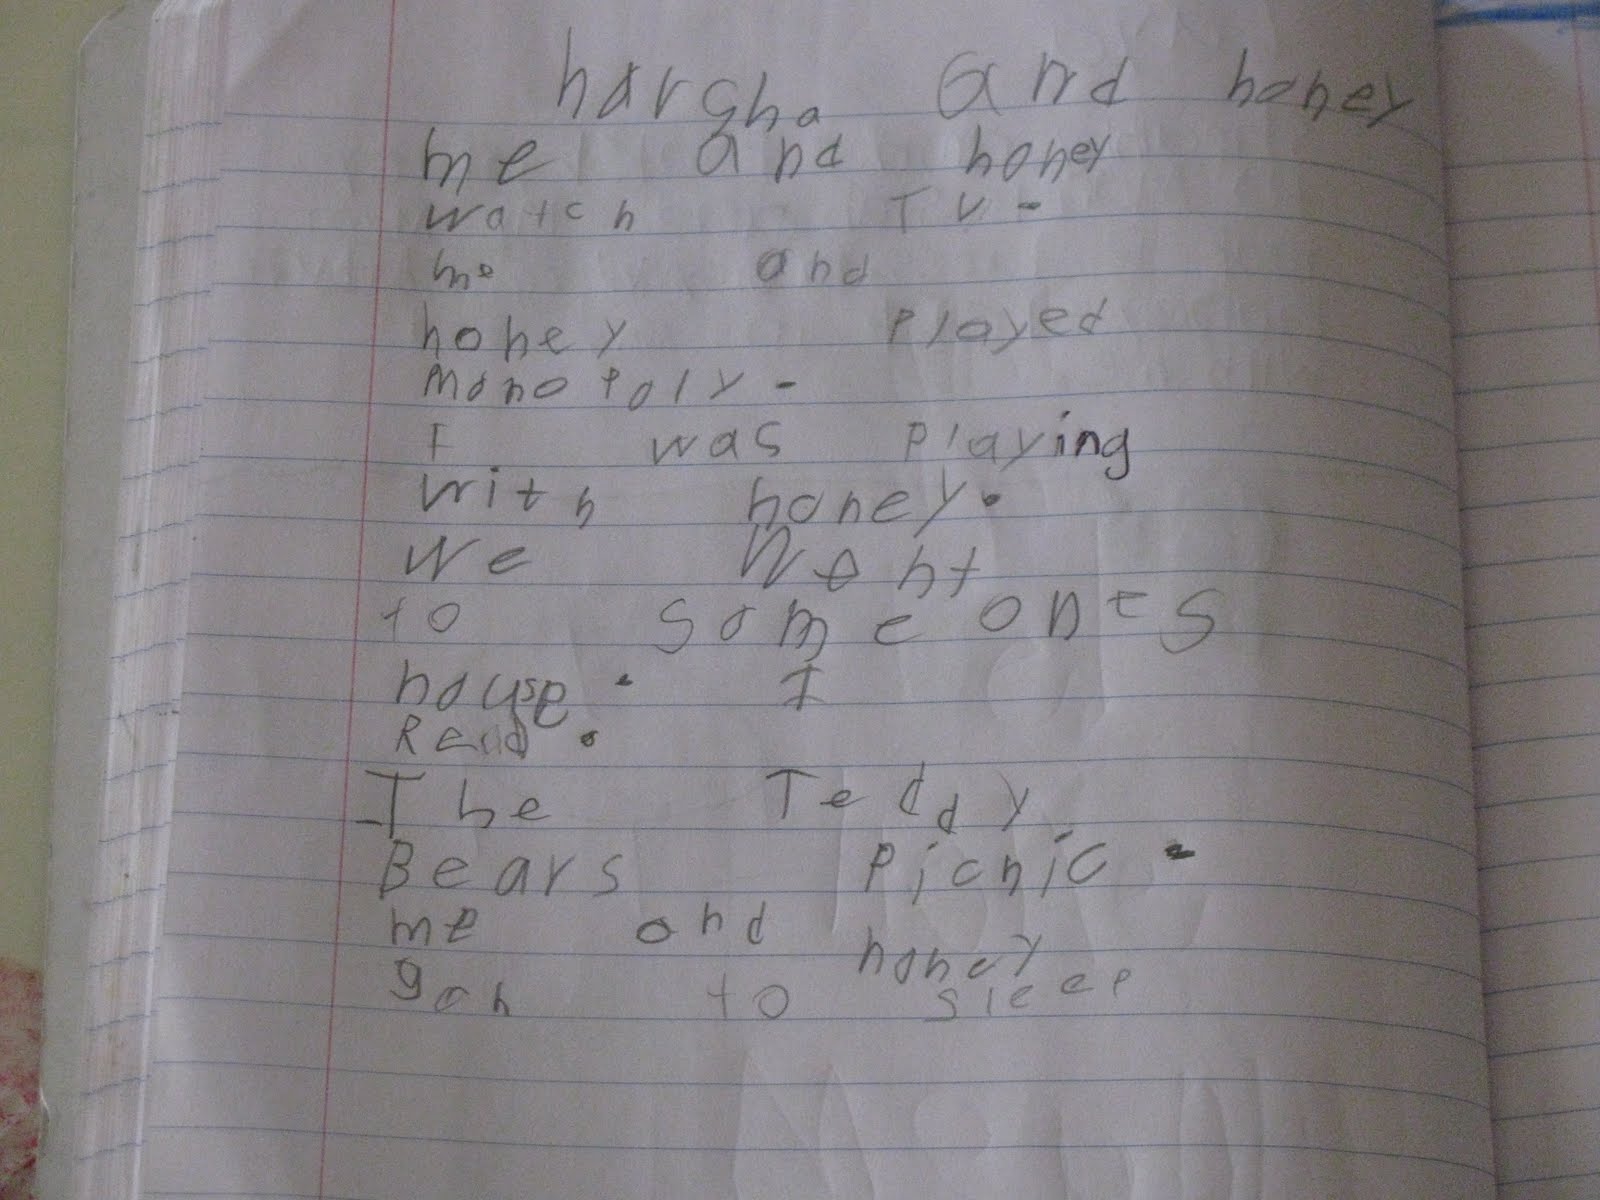 harsha and honey
me and honey
watch TV.
me and
honey Played
Monopoly.
I was Playing
with honey.
We Went
to someones
house. I
Read.
The Teddy
Bears Picnic.
me and honey
goh to sleep